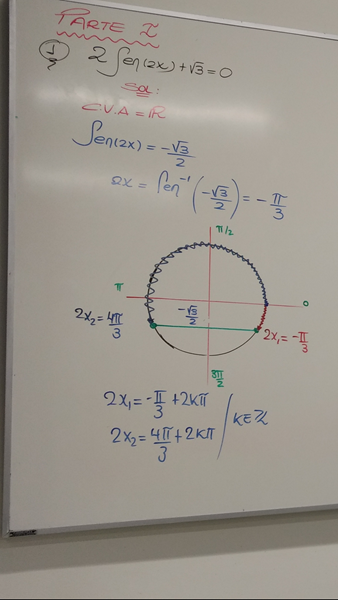 PARTE I
1) 2 Sen(2x) + √3 = 0
SOL:
C.V.A = IR
Sen(2x) = -√3/2
2x = Sen⁻¹(-√3/2) = -π/3
π/2
π
0
-√3/2
2x₂ = 4π/3
2x₁ = -π/3
3π/2
2x₁ = -π/3 + 2kπ
2x₂ = 4π/3 + 2kπ / k∈ℤ